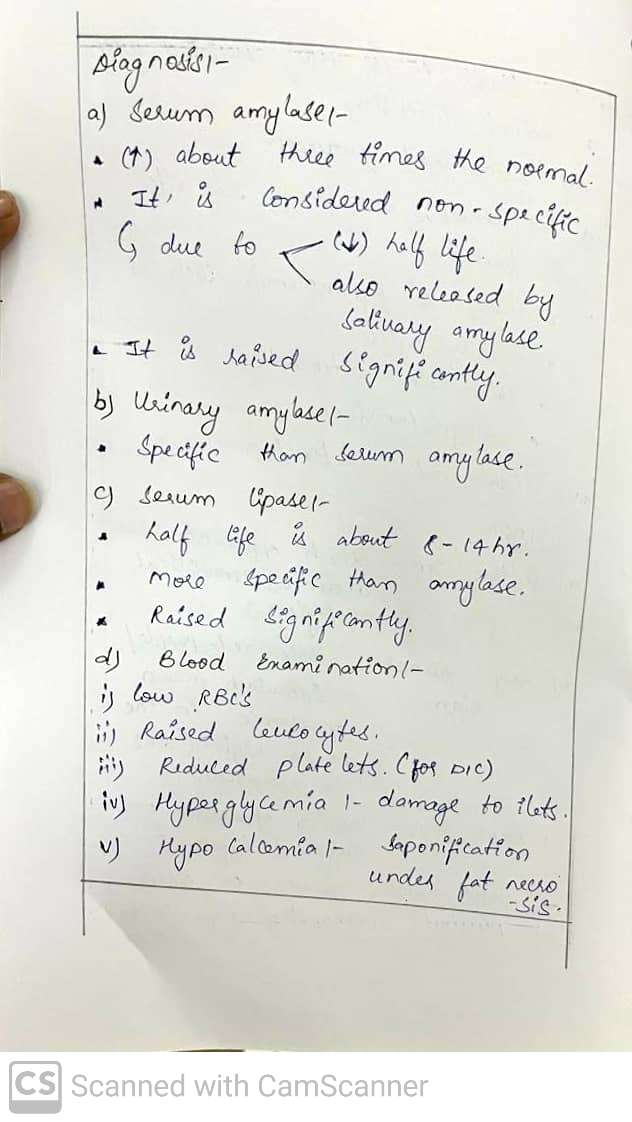 Diagnosis:-
a) Serum amylase:-
(↑) about three times the normal.
It, is Considered non-specific
↳ due to (↓) half life.
also released by
Salivary amylase.
It is raised significantly.
b) Urinary amylase:-
Specific than serum amylase.
c) Serum lipase:-
half life is about 8-14hr.
more specific than amylase.
Raised significantly.
d) Blood Examination:-
i) low RBC's
ii) Raised leucocytes.
iii) Reduced platelets. (for DIC)
iv) Hyperglycemia :- damage to ilets.
v) Hypo Calcemia :- Saponification
under fat necro
-sis.
CS Scanned with CamScanner